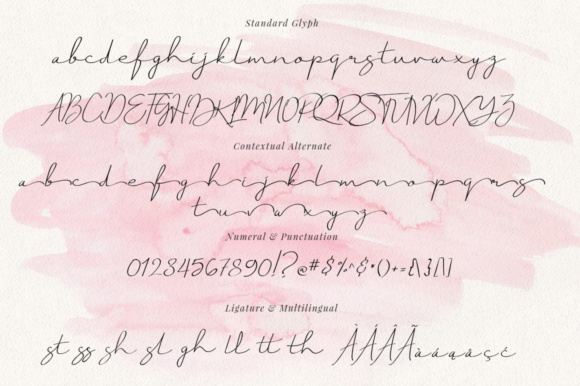 Standard Glyph
abcdefghijklmnopqrstuvwxyz
ABCDEFGHIJKLMNOPQRSTUVWXYZ
Contextual Alternate
abcdefghijklmnopqrs
tuvwxyz
Numeral & Punctuation
01234567890!?@#$%^&*()+={\}[\]
Ligature & Multilingual
st ss sh sl gh ll tt th ÀÁÂÃàáąâçć